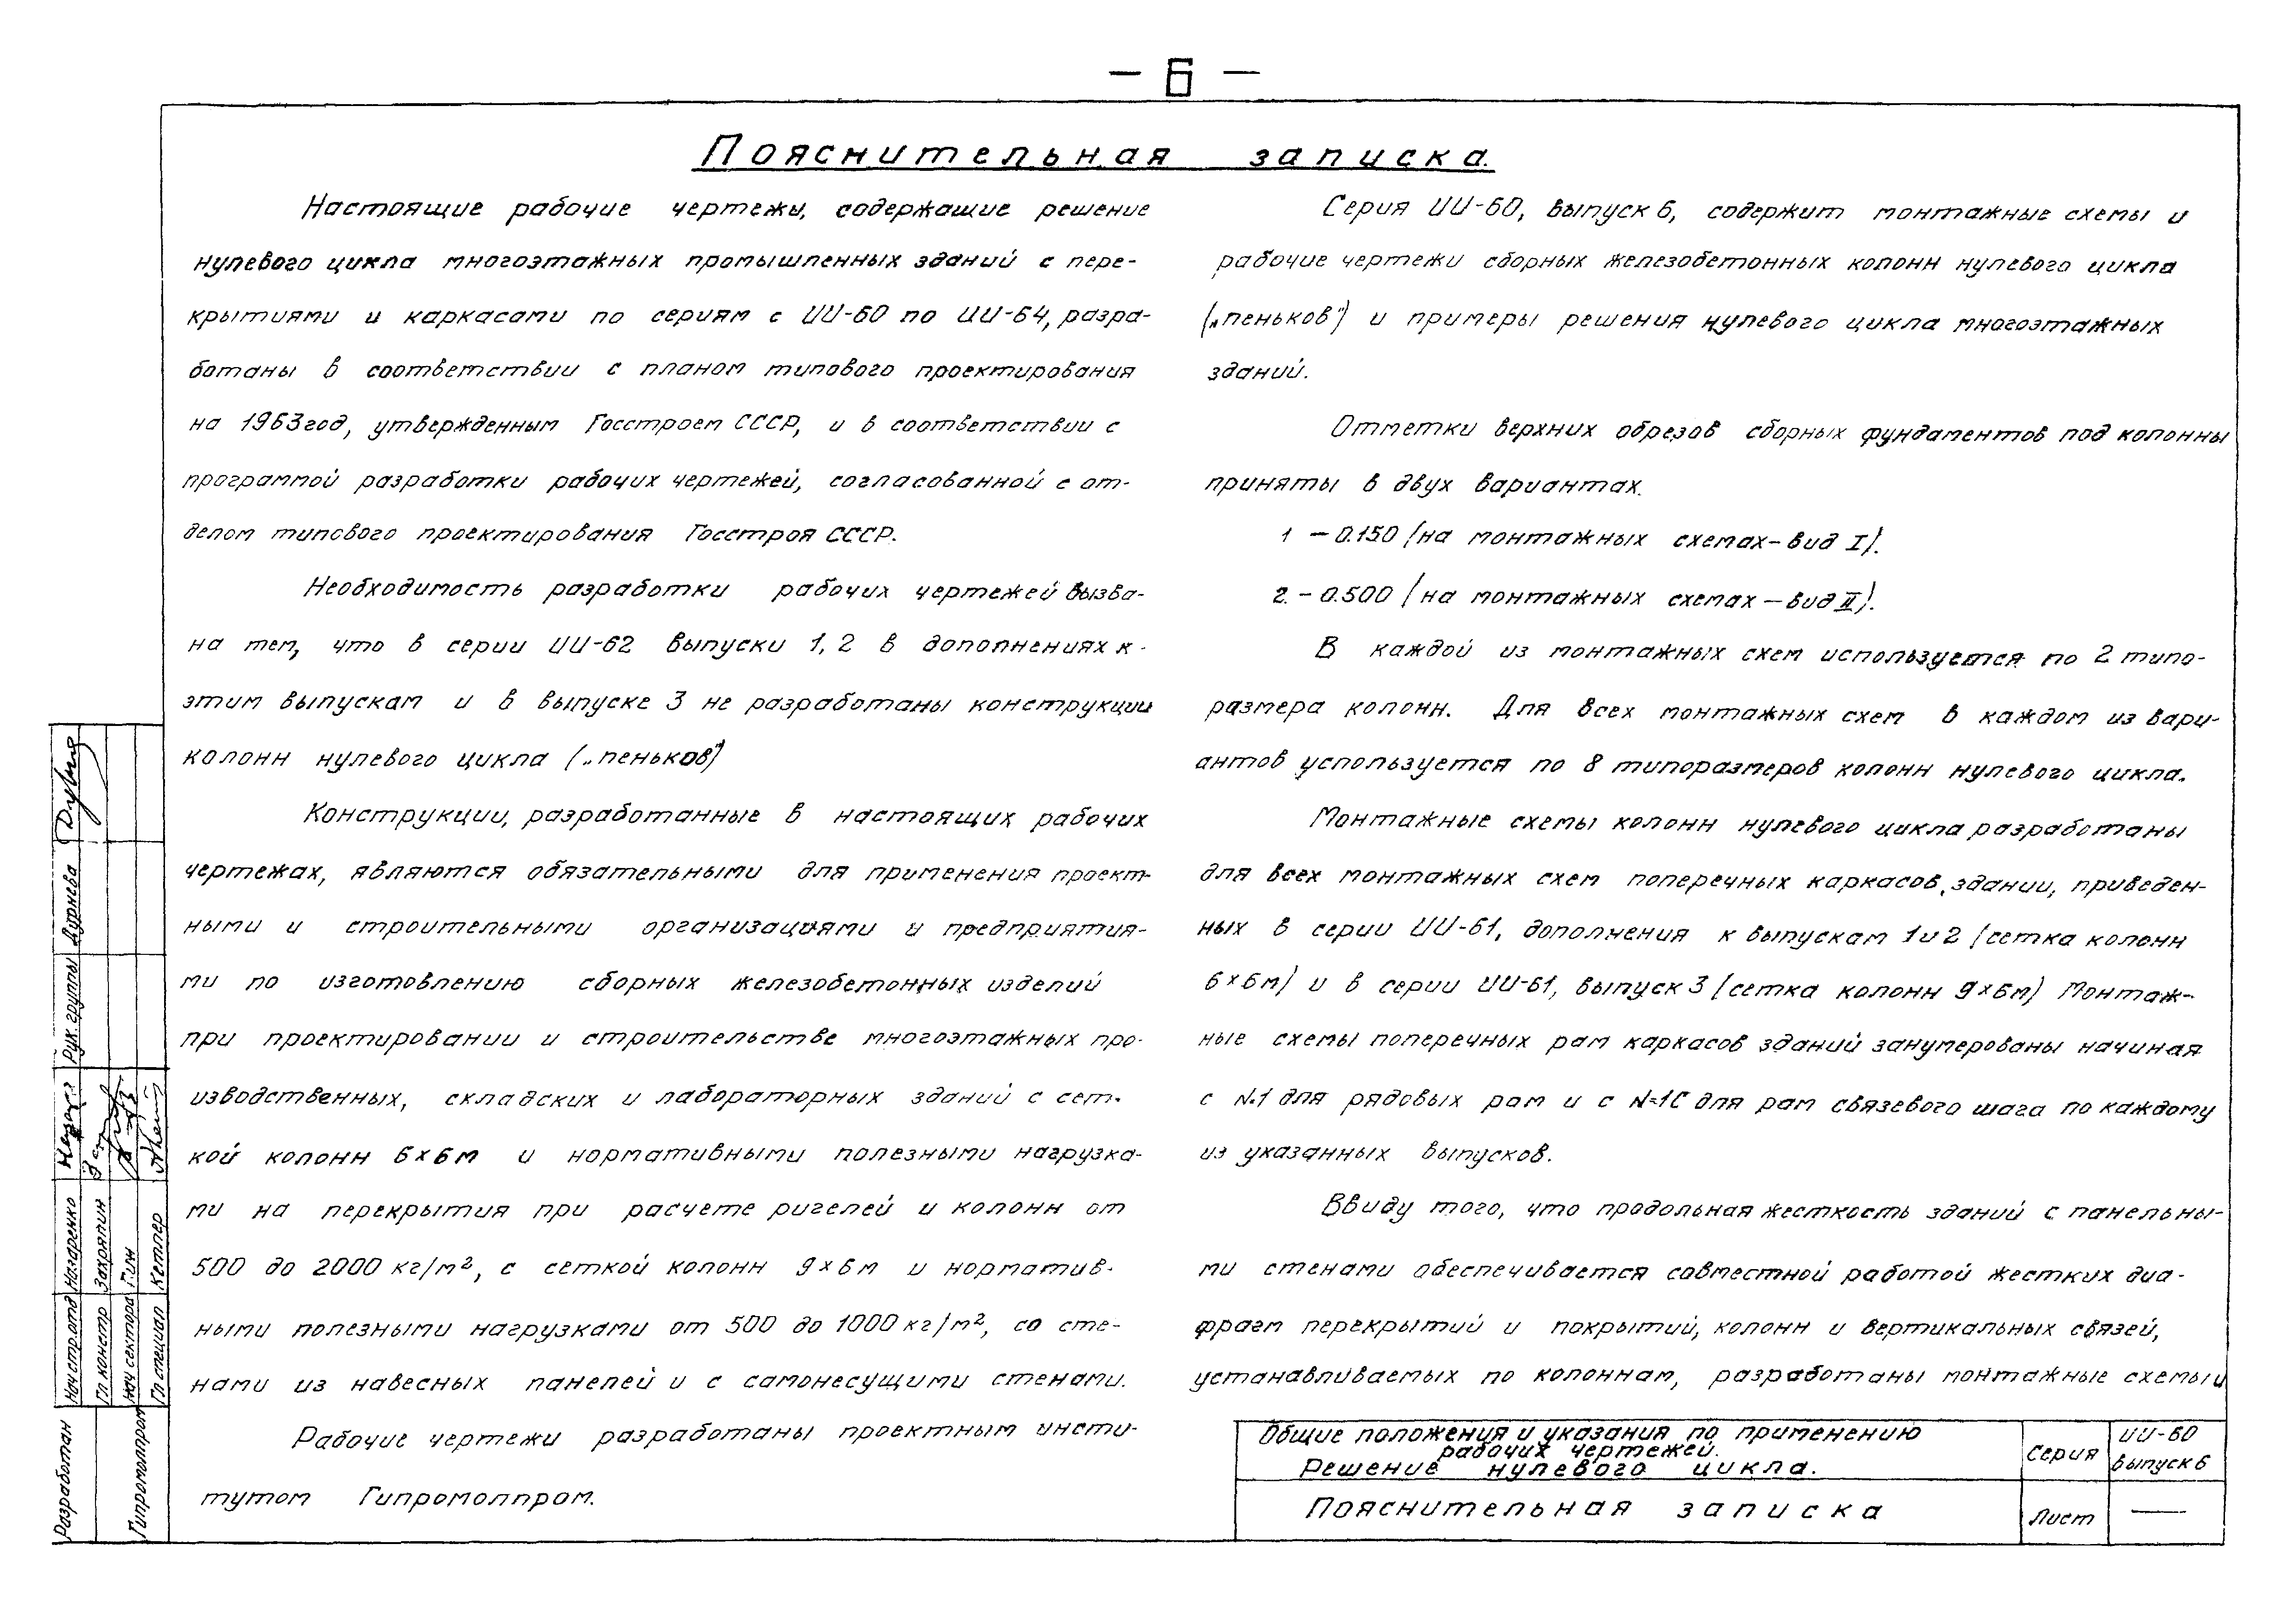 — 6 —
Пояснительная записка.
Настоящие рабочие чертежи, содержащие решение
нулевого цикла многоэтажных промышленных зданий с пере-
крытиями и каркасами по сериям с ИИ-60 по ИИ-64, разра-
ботаны в соответствии с планом типового проектирования
на 1963 год, утвержденным Госстроем СССР, и в соответствии с
программой разработки рабочих чертежей, согласованной с от-
делом типового проектирования Госстроя СССР.
Необходимость разработки рабочих чертежей вызва-
на тем, что в серии ИИ-62 выпуски 1, 2 в дополнениях к
этим выпускам и в выпуске 3 не разработаны конструкции
колонн нулевого цикла („пеньков")
Конструкции, разработанные в настоящих рабочих
чертежах, являются обязательными для применения проект-
ными и строительными организациями и предприятия-
ми по изготовлению сборных железобетонных изделий
при проектировании и строительстве многоэтажных про-
изводственных, складских и лабораторных зданий с сет-
кой колонн 6×6м и нормативными полезными нагрузка-
ми на перекрытия при расчете ригелей и колонн от
500 до 2000 кг/м², с сеткой колонн 9×6м и норматив-
ными полезными нагрузками от 500 до 1000 кг/м², со сте-
нами из навесных панелей и с самонесущими стенами.
Рабочие чертежи разработаны проектным инсти-
тутом Гипромолпром.
Серия ИИ-60, выпуск 6, содержит монтажные схемы и
рабочие чертежи сборных железобетонных колонн нулевого цикла
(„пеньков") и примеры решения нулевого цикла многоэтажных
зданий.
Отметки верхних обрезов сборных фундаментов под колонны
приняты в двух вариантах.
1 — 0.150 (на монтажных схемах – вид I).
2. – 0.500 (на монтажных схемах — вид II).
В каждой из монтажных схем используется по 2 типо-
размера колонн. Для всех монтажных схем в каждом из вари-
антов успользуется по 8 типоразмеров колонн нулевого цикла.
Монтажные схемы колонн нулевого цикла разработаны
для всех монтажных схем поперечных каркасов, здании, приведен-
ных в серии ИИ-61, дополнения к выпускам 1 и 2 (сетка колонн
6×6м) и в серии ИИ-61, выпуск 3 (сетка колонн 9×6м) Монтаж-
ные схемы поперечных рам каркасов зданий занумерованы начиная
с №1 для рядовых рам и с №1С для рам связевого шага по каждому
из указанных выпусков.
Ввиду того, что продольная жесткость зданий с панельны-
ми стенами обеспечивается совместной работой жестких диа-
фрагм перекрытий и покрытий, колонн и вертикальных связей,
устанавливаемых по колоннам, разработаны монтажные схемы и
Общие положения и указания по применению
рабочих чертежей.
Решение нулевого цикла.
Серия
ИИ-60
выпуск 6
Пояснительная записка
Лист
—
Рук. группы Дурнева
Нач стр. отд Назаренко
Гл констр Захряпин
Нач сектора Гиж
Гл специал Кетлер
Разработан
Гипромолпром